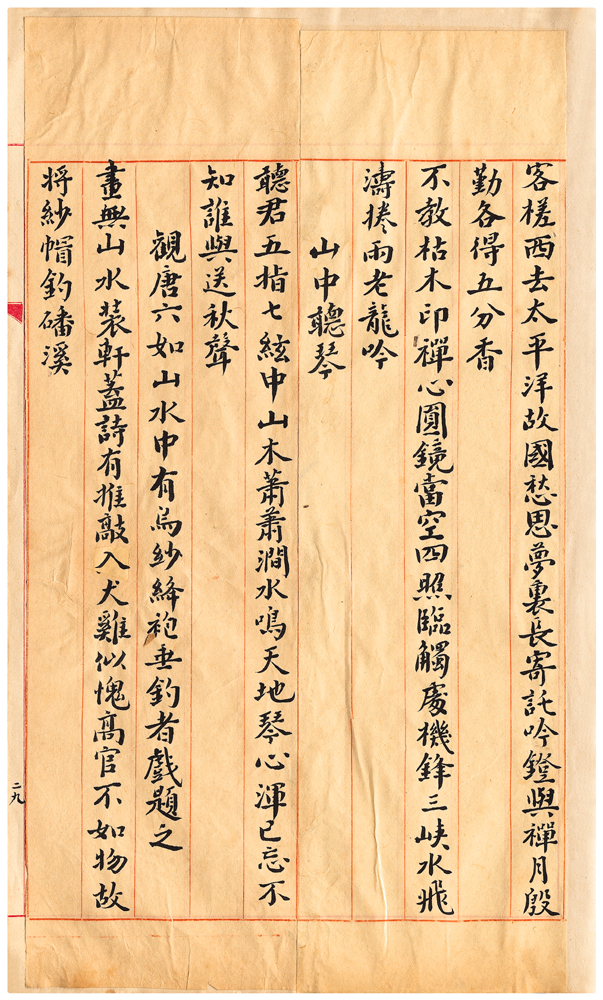 客槎西去太平洋故國愁思夢裏長寄託吟鐙與禪月殷
勤各得五分香
不教枯木印禪心圓鏡當空四照臨觸處機鋒三峽水飛
濤捲雨老龍吟
山中聽琴
聽君五指七絃中山木蕭蕭澗水鳴天地琴心渾已忘不
知誰與送秋聲
觀唐六如山水中有烏紗絳袍垂釣者戲題之
畫無山水裝軒蓋詩有推敲入犬雞似愧高官不如物故
將紗帽釣磻溪
二九